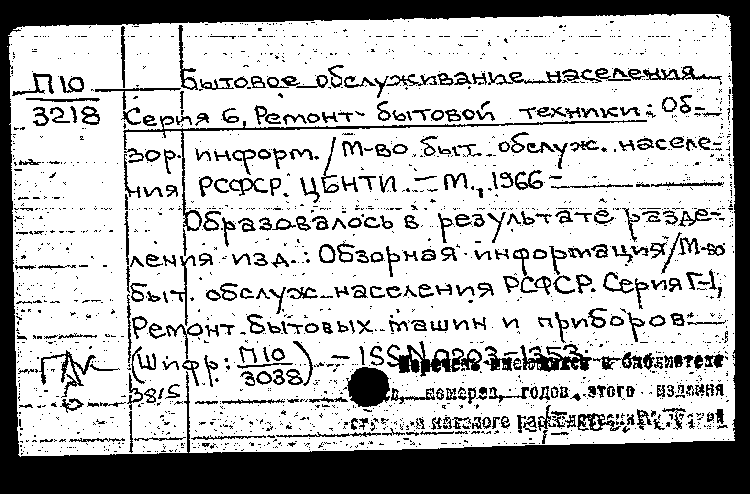 П10
3218
Бытовое обслуживание населения
Серия 6, Ремонт бытовой техники: Об-
зор. информ. / М-во быт. обслуж. населе-
ния РСФСР. ЦБНТИ. — М., 1966 —
Образовалось в результате разде-
ления изд.: Обзорная информация / М-во
быт. обслуж. населения РСФСР. Серия Г-1,
Ремонт бытовых машин и приборов.
(Шифр: П10/3038) — ISSN 0203-1353
3815
Перечень имеющихся в библиотеке
номеров, годов этого издания
в каталоге